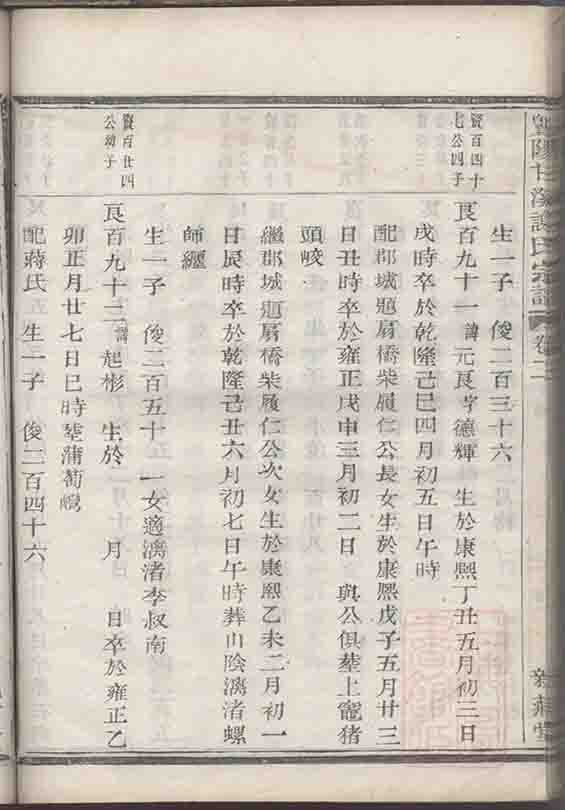 暨陽甘溪謝氏宗譜 卷二
生一子 俊二百三十六
賢百四十
七公四子
良百九十一 諱元良字德輝 生於康熙丁丑五月初三日
戌時卒於乾隆己巳四月初五日午時
配郡城題扇橋柴履仁公長女生於康熙戊子五月廿三
日丑時卒於雍正戊申三月初二日 與公俱塟上竈猪
頭峧
繼郡城題扇橋柴履仁公次女生於康熙乙未二月初一
日辰時卒於乾隆己丑六月初七日午時葬山陰漓渚螺
師纒
生一子 俊二百五十 一女適漓渚李叔南
賢百廿四
公幼子
良百九十二 諱起彬 生於 月 日卒於雍正乙
卯正月廿七日巳時塟蒲萄
配蔣氏 生一子 俊二百四十六